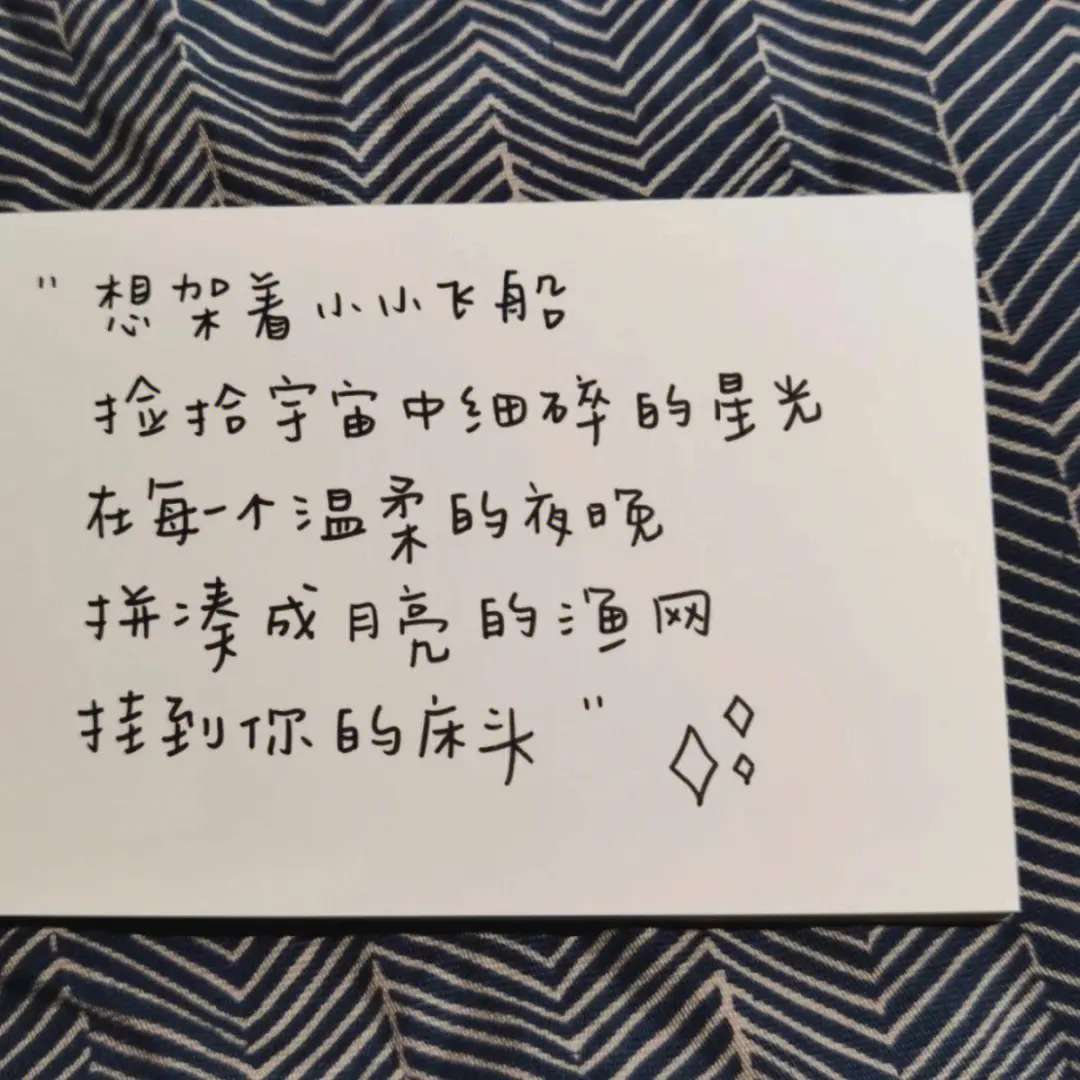 "想架着小小飞船
捡拾宇宙中细碎的星光
在每一个温柔的夜晚
拼凑成月亮的渔网
挂到你的床头"